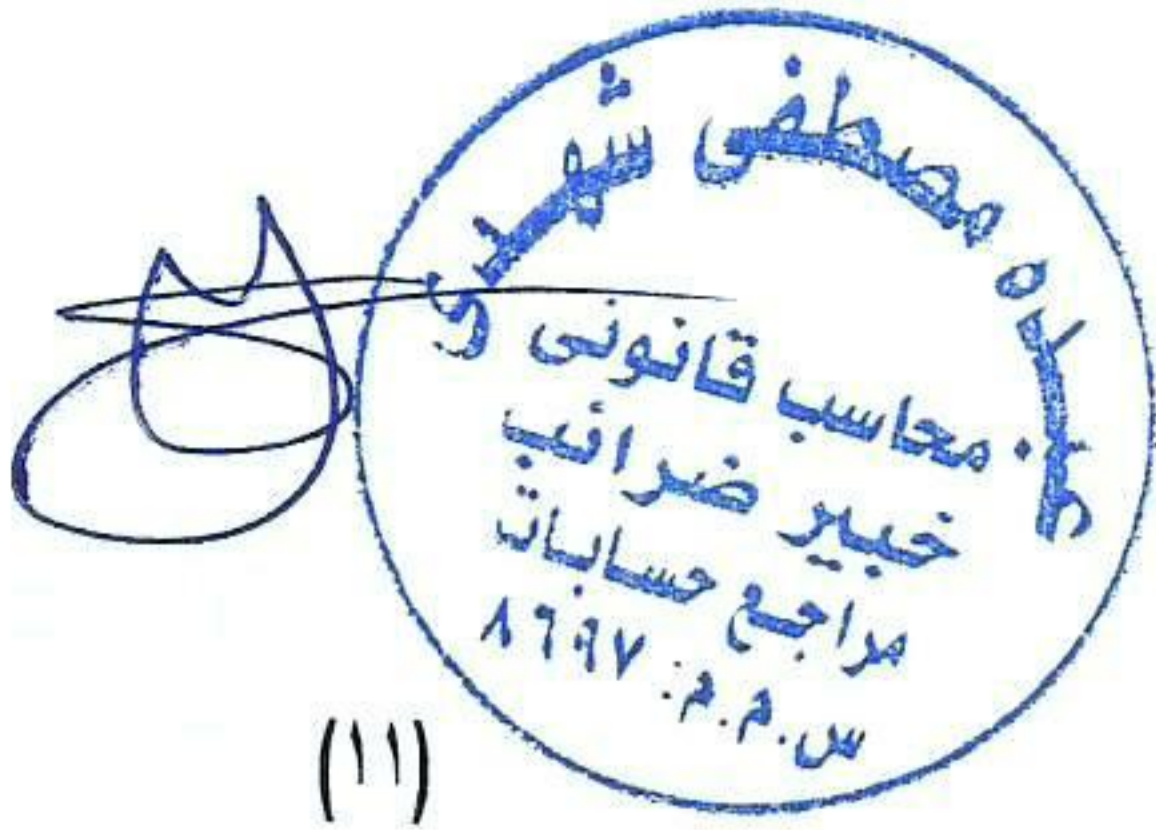 مصطفى شهدى
محاسب قانونى
خبير ضرائب
مراجع حسابات
س.م.م: ٨٦٩٧
(١١)